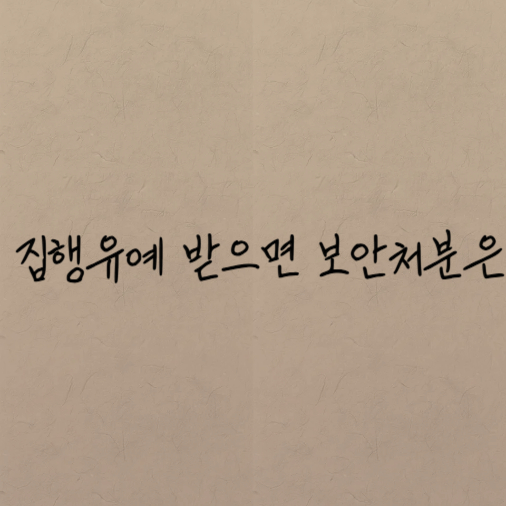 집행유예 받으면 보안처분은